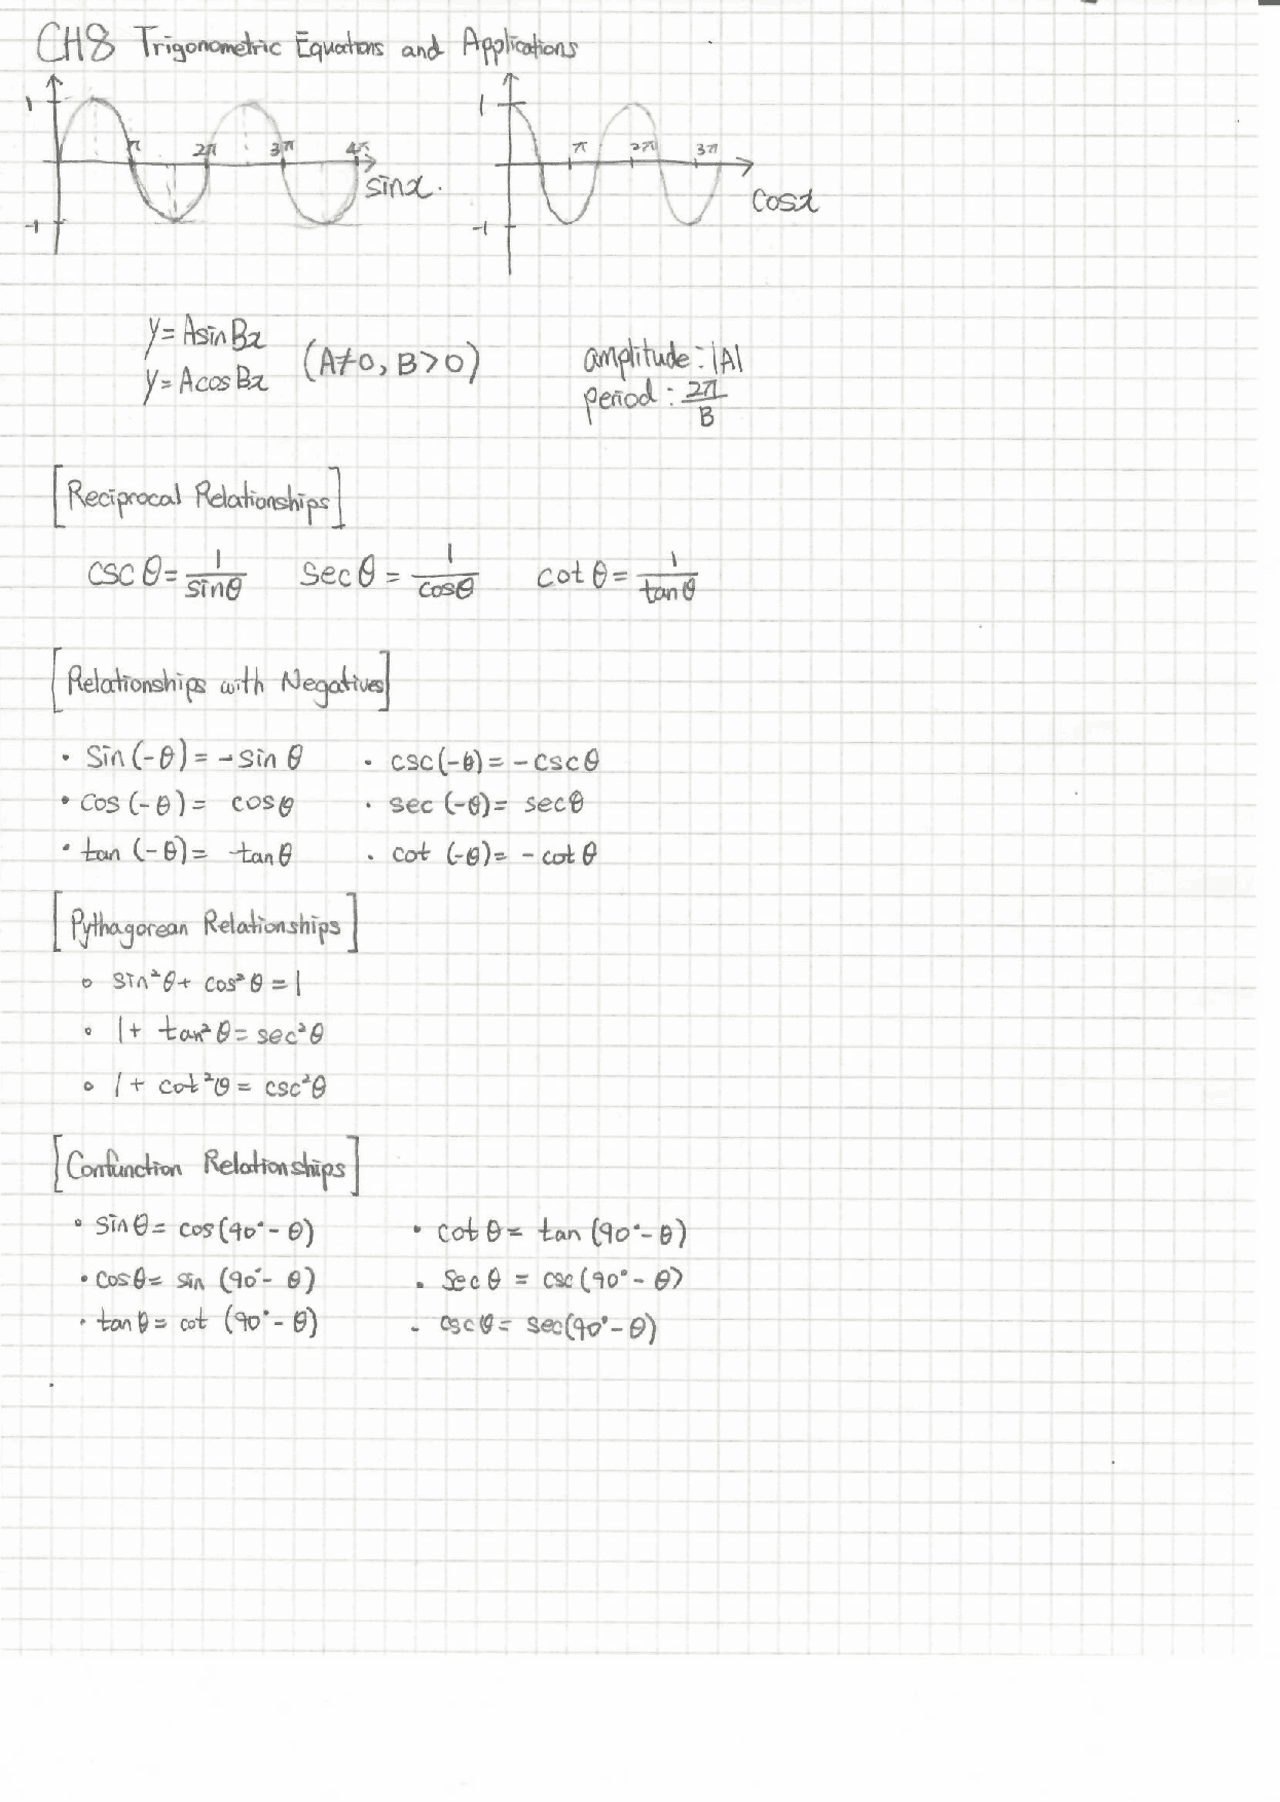 CH8 Trigonometric Equations and Applications
1
π 2π 3π 4π
sinx.
-1
1
π 2π 3π
cosx
-1
y=AsinBx
y=AcosBx
(A≠0, B>0)
amplitude: |A|
period: 2π/B
[Reciprocal Relationships]
csc θ = 1/sinθ sec θ = 1/cosθ cot θ = 1/tanθ
[Relationships with Negatives]
• sin (-θ) = -sin θ • csc (-θ) = -csc θ
• cos (-θ) = cosθ • sec (-θ) = secθ
• tan (-θ) = -tanθ • cot (-θ) = -cot θ
[Pythagorean Relationships]
∘ sin²θ + cos²θ = 1
∘ 1 + tan²θ = sec²θ
∘ 1 + cot²θ = csc²θ
[Confunction Relationships]
• sinθ = cos(90°-θ) • cotθ = tan (90°-θ)
• cosθ = sin (90°-θ) • Secθ = csc (90°-θ)
• tanθ = cot (90°-θ) • cscθ = sec(90°-θ)